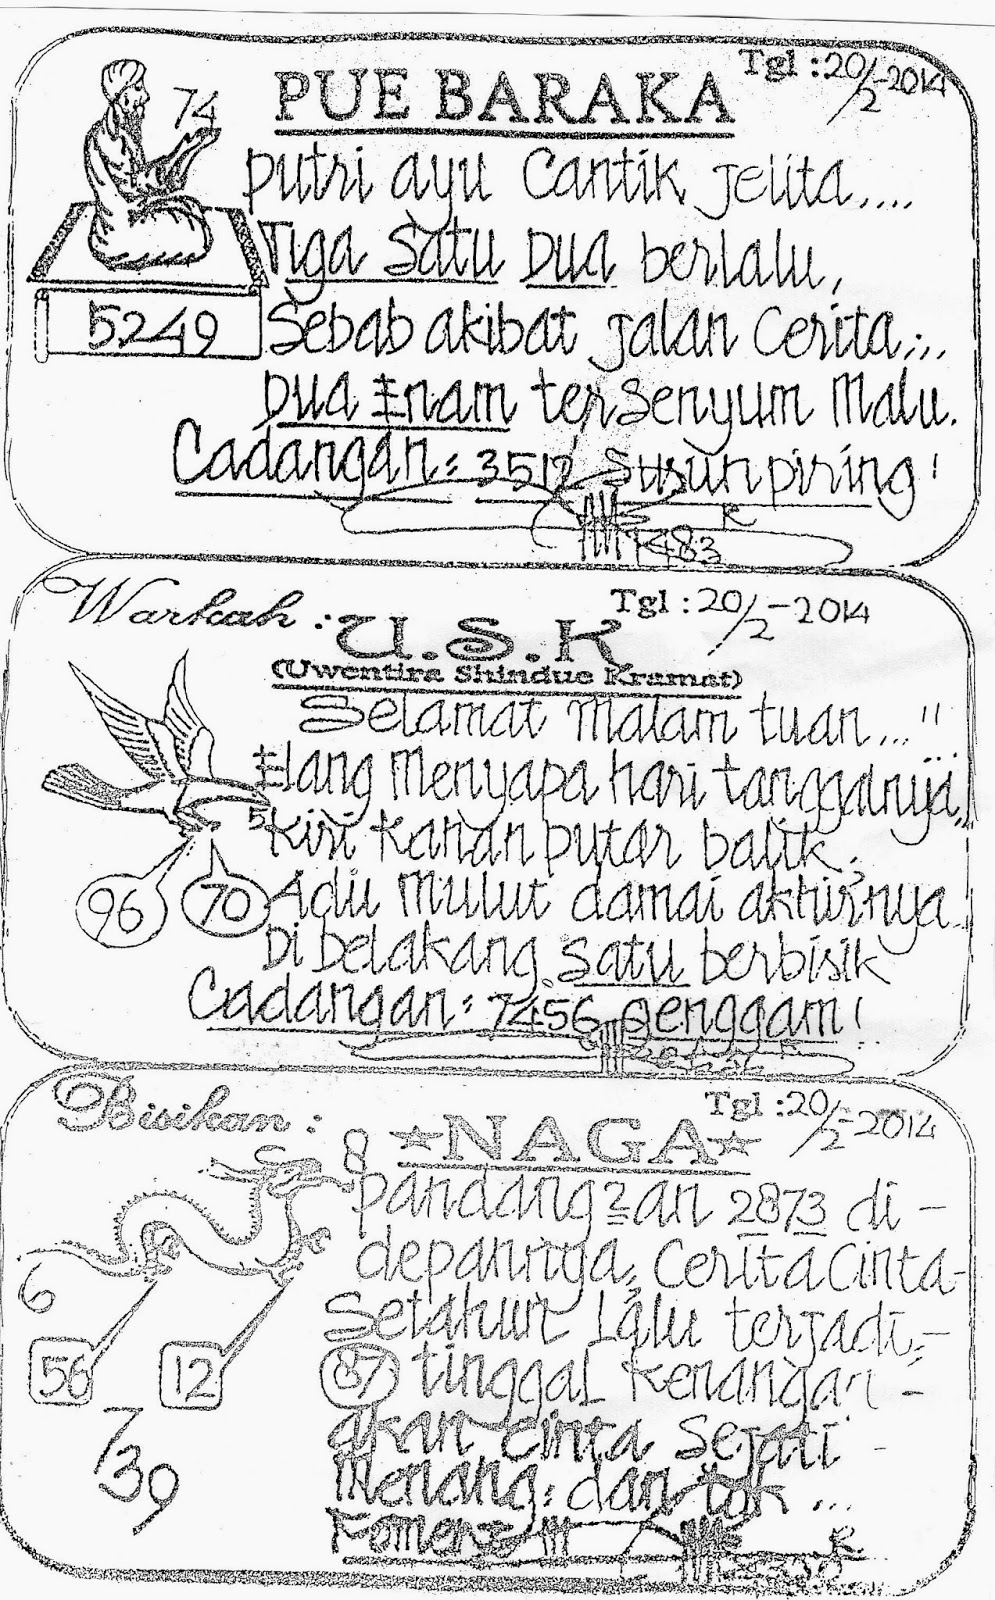 Tgl : 20/2-2014
PUE BARAKA
74
putri ayu Cantik jelita....
Tiga Satu Dua berlalu,
5249
Sebab akibat jalan Cerita...
Dua Enam tersenyum Malu.
Cadangan : 3512 Susun piring !
1483
Warkah :
Tgl : 20/2-2014
U.S.K
(Uwentira Shindue Kramat)
Selamat Malam tuan... !!
Elang Menyapa hari tanggalnya
5
kiri Kanan putar balik.
96 70
Adu Mulut damai akhirnya
Di belakang Satu berbisik
Cadangan : 7456 genggam !
Bisikan :
Tgl : 20/2-2014
NAGA
8
pandang2an 2873 di -
depannya, Cerita Cinta-
6
Setahun Lalu terjadi,-
56 12
87 tinggal Kenangan -
akan Cinta Sejati
739
Menang : dan tok ...